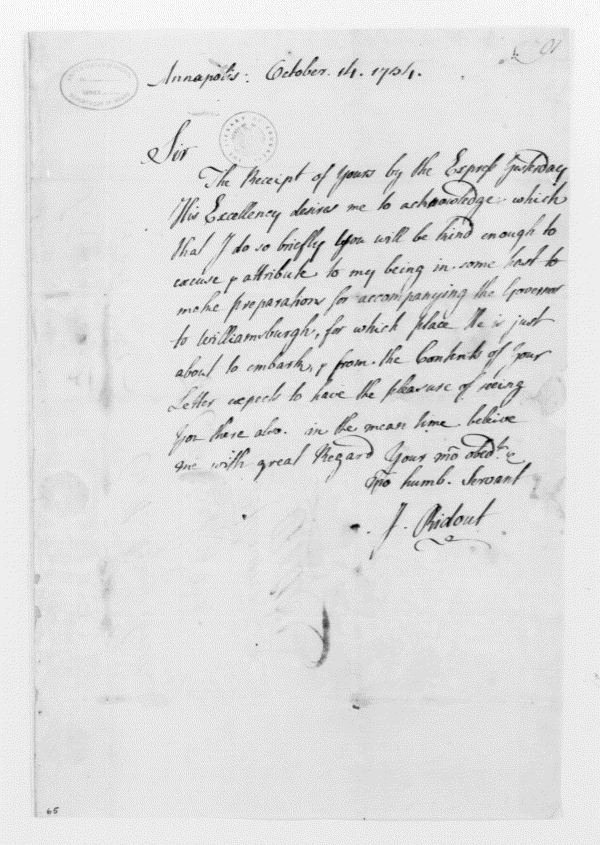 Annapolis: October. 14. 1754.
Sir
The Receipt of Yours by the Express Yesterday
His Excellency desires me to acknowledge. which
that I do so briefly You will be kind enough to
excuse & attribute to my being in some hast to
make preparations for accompanying the Governor
to Williamsburgh, for which place He is just
about to embark, & from the Contents of Your
Letter expects to have the pleasure of seeing
You there also. in the mean time beleive
me with great Regard Your mo obedt. &
mo humb. Servant
J. Ridout
65